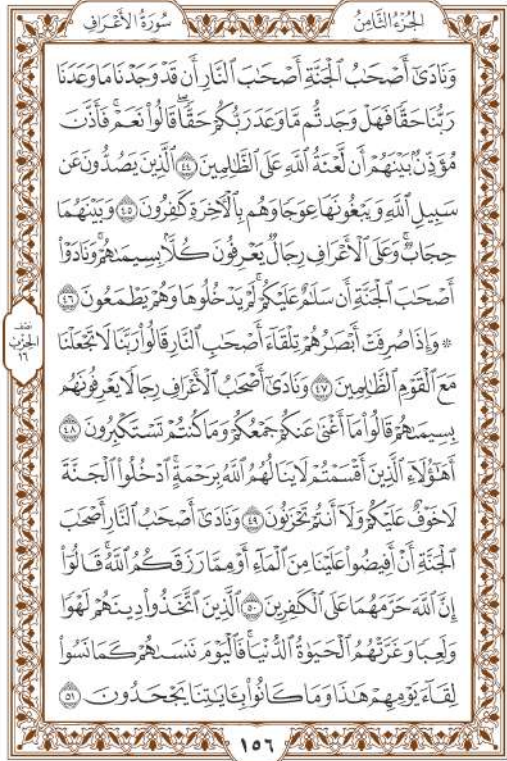 سُورَةُ الْأَعْرَافِ
الْجُزْءُ الثَّامِنُ
وَنَادَىٰٓ أَصْحَٰبُ ٱلْجَنَّةِ أَصْحَٰبَ ٱلنَّارِ أَن قَدْ وَجَدْنَا مَا وَعَدَنَا
رَبُّنَا حَقًّا فَهَلْ وَجَدتُّم مَّا وَعَدَ رَبُّكُمْ حَقًّا ۖ قَالُوا۟ نَعَمْ ۚ فَأَذَّنَ
مُؤَذِّنٌۢ بَيْنَهُمْ أَن لَّعْنَةُ ٱللَّهِ عَلَى ٱلظَّٰلِمِينَ ٤٤ ٱلَّذِينَ يَصُدُّونَ عَن
سَبِيلِ ٱللَّهِ وَيَبْغُونَهَا عِوَجًا وَهُم بِٱلْـَٔاخِرَةِ كَٰفِرُونَ ٤٥ وَبَيْنَهُمَا
حِجَابٌ ۚ وَعَلَى ٱلْأَعْرَافِ رِجَالٌ يَعْرِفُونَ كُلًّۢا بِسِيمَىٰهُمْ ۚ وَنَادَوْا۟
أَصْحَٰبَ ٱلْجَنَّةِ أَن سَلَٰمٌ عَلَيْكُمْ ۚ لَمْ يَدْخُلُوهَا وَهُمْ يَطْمَعُونَ ٤٦
۞ وَإِذَا صُرِفَتْ أَبْصَٰرُهُمْ تِلْقَآءَ أَصْحَٰبِ ٱلنَّارِ قَالُوا۟ رَبَّنَا لَا تَجْعَلْنَا
مَعَ ٱلْقَوْمِ ٱلظَّٰلِمِينَ ٤٧ وَنَادَىٰٓ أَصْحَٰبُ ٱلْأَعْرَافِ رِجَالًا يَعْرِفُونَهُم
بِسِيمَىٰهُمْ قَالُوا۟ مَآ أَغْنَىٰ عَنكُمْ جَمْعُكُمْ وَمَا كُنتُمْ تَسْتَكْبِرُونَ ٤٨
أَهَٰٓؤُلَآءِ ٱلَّذِينَ أَقْسَمْتُمْ لَا يَنَالُهُمُ ٱللَّهُ بِرَحْمَةٍ ۚ ٱدْخُلُوا۟ ٱلْجَنَّةَ
لَا خَوْفٌ عَلَيْكُمْ وَلَآ أَنتُمْ تَحْزَنُونَ ٤٩ وَنَادَىٰٓ أَصْحَٰبُ ٱلنَّارِ أَصْحَٰبَ
ٱلْجَنَّةِ أَنْ أَفِيضُوا۟ عَلَيْنَا مِنَ ٱلْمَآءِ أَوْ مِمَّا رَزَقَكُمُ ٱللَّهُ ۚ قَالُوٓا۟
إِنَّ ٱللَّهَ حَرَّمَهُمَا عَلَى ٱلْكَٰفِرِينَ ٥٠ ٱلَّذِينَ ٱتَّخَذُوا۟ دِينَهُمْ لَهْوًا
وَلَعِبًا وَغَرَّتْهُمُ ٱلْحَيَوٰةُ ٱلدُّنْيَا ۚ فَٱلْيَوْمَ نَنسَىٰهُمْ كَمَا نَسُوا۟
لِقَآءَ يَوْمِهِمْ هَٰذَا وَمَا كَانُوا۟ بِـَٔايَٰتِنَا يَجْحَدُونَ ٥١
نصف
الحزب
١٦
١٥٦